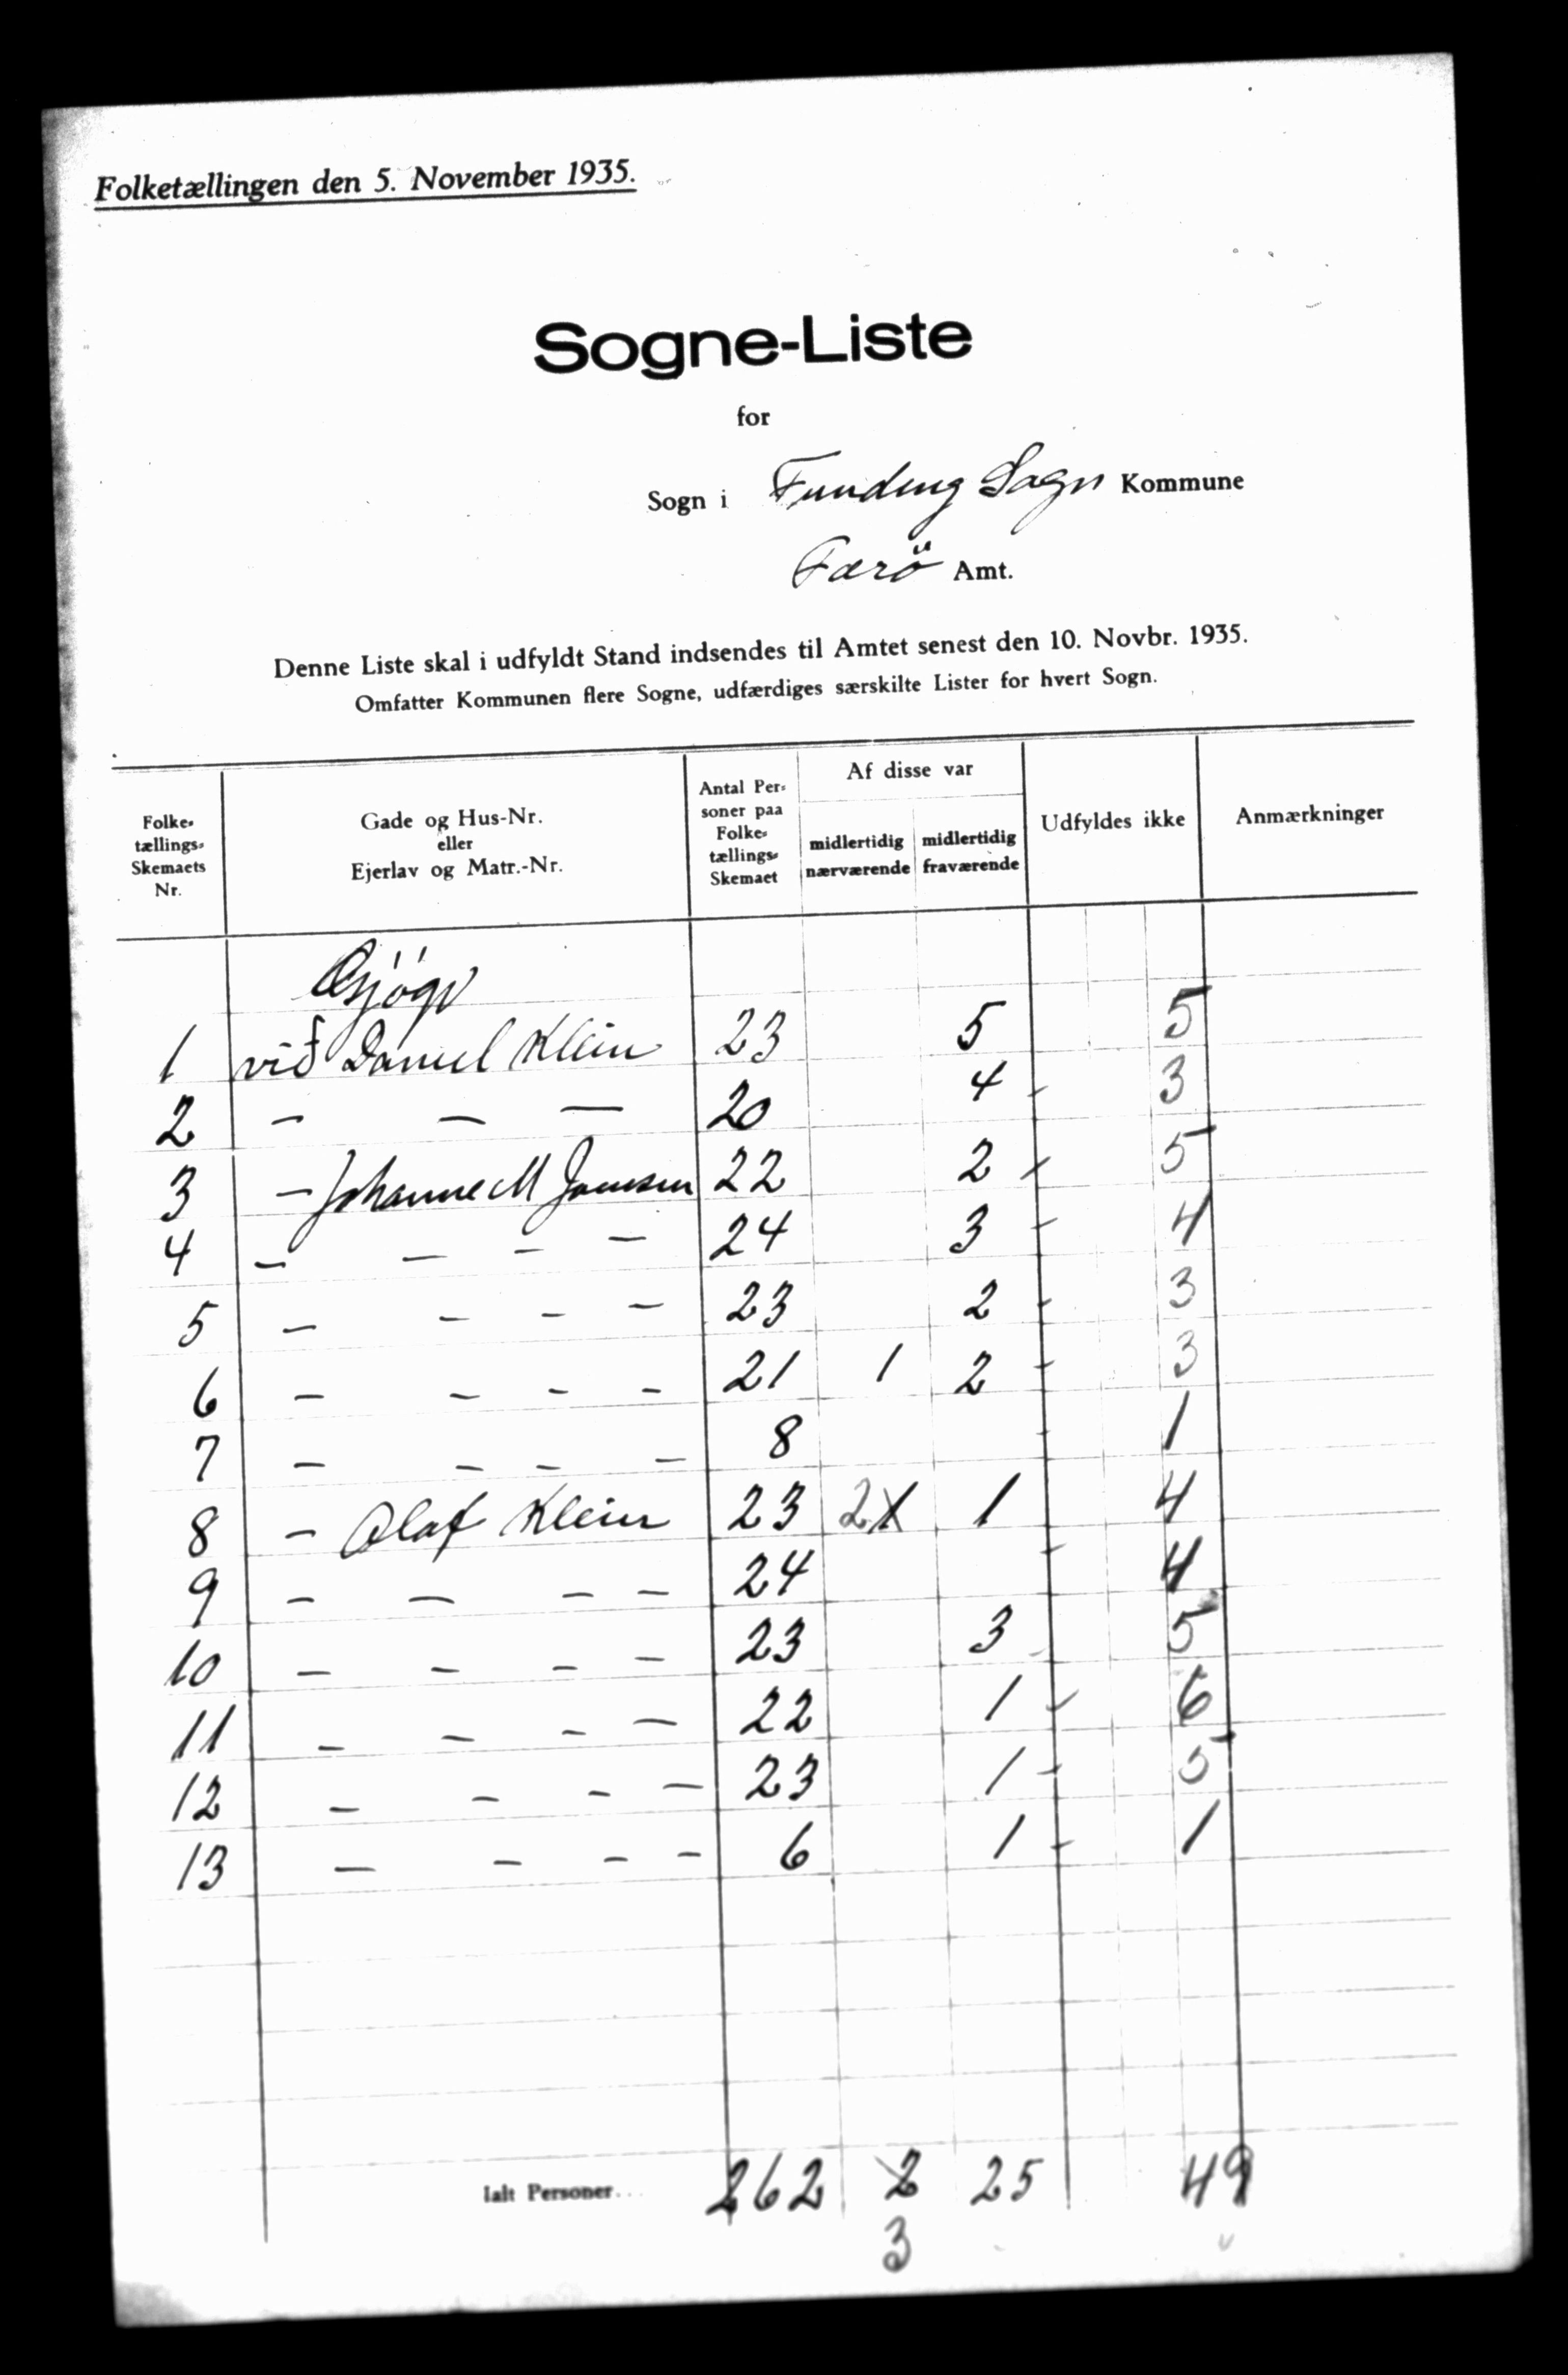 Folketællingen den 5. November 1935.
Sogne-Liste
for
Sogn i Funding Sogn Kommune
Færö Amt.
Denne Liste skal i udfyldt Stand indsendes til Amtet senest den 10. Novbr. 1935.
Omfatter Kommunen flere Sogne, udfærdiges særskilte Lister for hvert Sogn.
Folke-tællings-Skemaets Nr. Gade og Hus-Nr. eller Ejerlav og Matr.-Nr. Antal Personer paa Folke-tællings-Skemaet Af disse var midlertidig nærværende midlertidig fraværende Udfyldes ikke Anmærkninger
Gjógv
1 við Daniel Klein 23 5 5
2 - - - 20 4 - 3
3 - Johanne M Joensen 22 2 - 5
4 - - - - 24 3 - 4
5 - - - - 23 2 - 3
6 - - - - 21 1 2 - 3
7 - - - - 8 - 1
8 - Olaf Klein 23 2 1 1 4
9 - - - - 24 - 4
10 - - - - 23 3 - 5
11 - - - - 22 1 - 6
12 - - - - 23 1 - 5
13 - - - - 6 1 - 1
Ialt Personer... 262 2 25 49
3